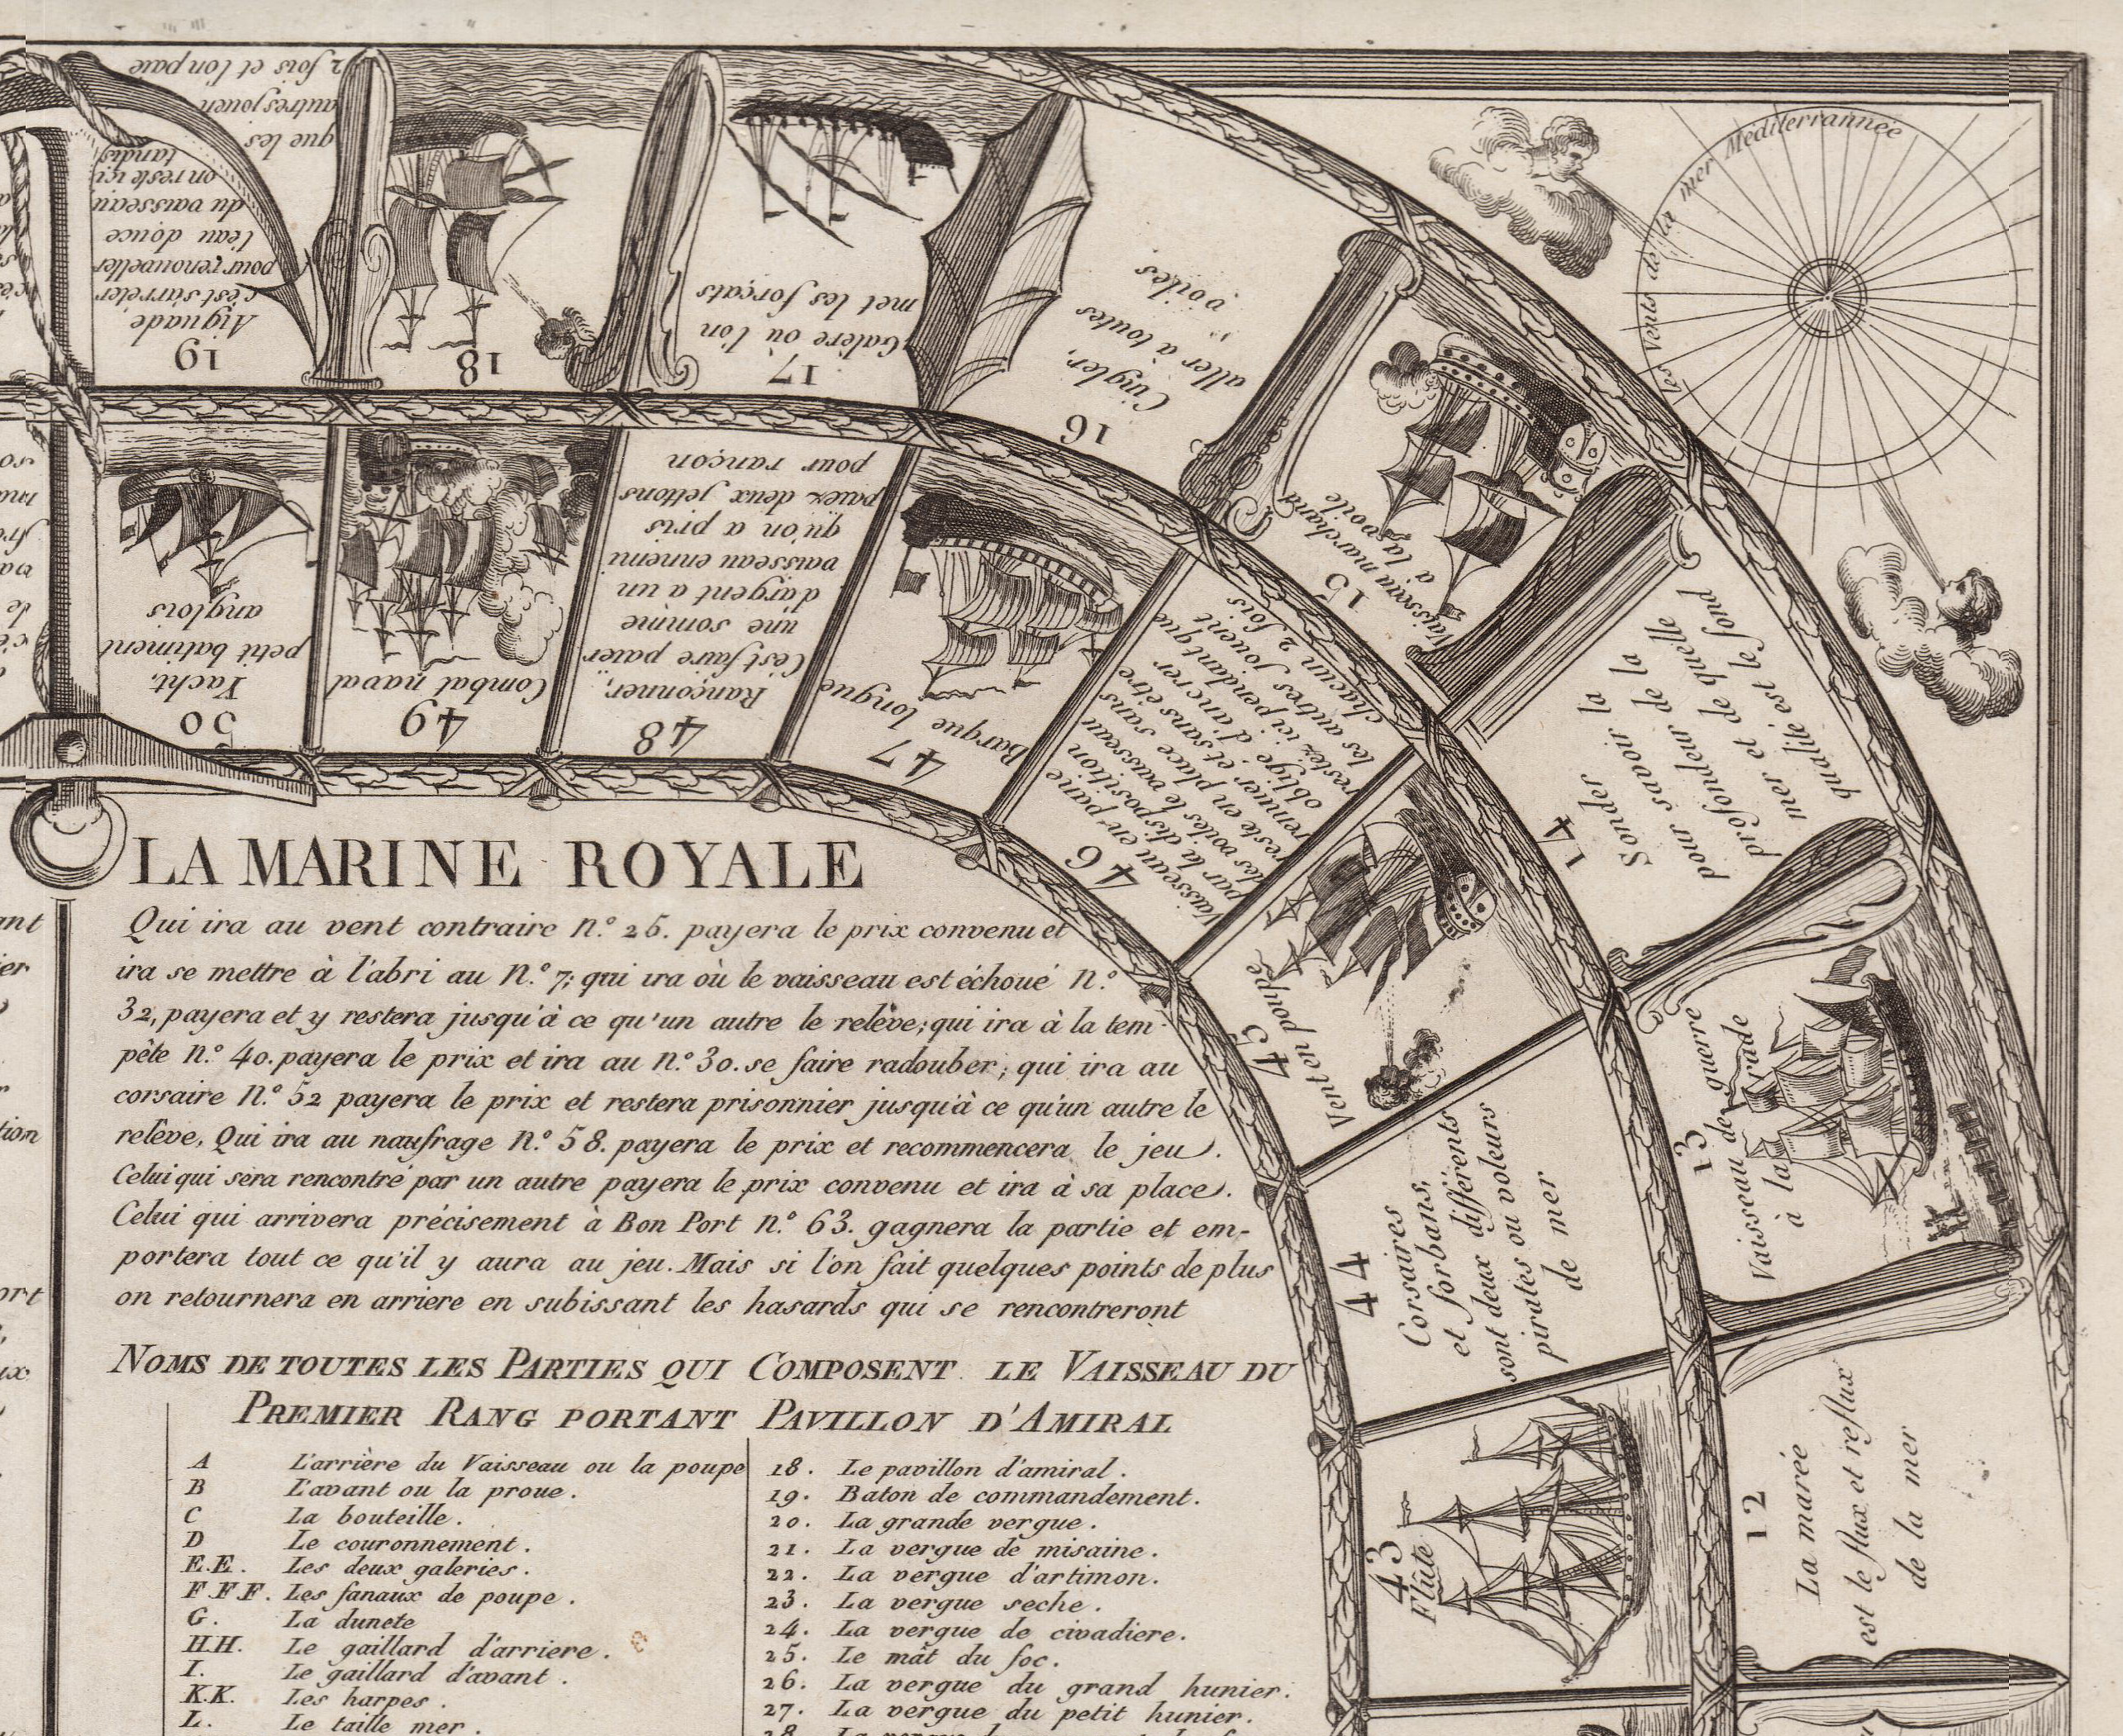 LA MARINE ROYALE
Qui ira au vent contraire N.º 26. payera le prix convenu et
ira se mettre à l'abri au N.º 7; qui ira où le vaisseau est échoué N.º
32, payera et y restera jusqu'à ce qu'un autre le relève; qui ira à la tem-
pête N.º 40. payera le prix et ira au N.º 30. se faire radouber; qui ira au
corsaire N.º 52 payera le prix et restera prisonnier jusqu'à ce qu'un autre le
relève, Qui ira au naufrage N.º 58. payera le prix et recommencera le jeu.
Celui qui sera rencontré par un autre payera le prix convenu et ira à sa place.
Celui qui arrivera précisement à Bon Port N.º 63. gagnera la partie et em-
portera tout ce qu'il y aura au jeu. Mais si l'on fait quelques points de plus
on retournera en arriere en subissant les hasards qui se rencontreront
NOMS DE TOUTES LES PARTIES QUI COMPOSENT LE VAISSEAU DU
PREMIER RANG PORTANT PAVILLON D'AMIRAL
A L'arrière du Vaisseau ou la poupe
B L'avant ou la proue.
C La bouteille.
D Le couronnement.
E.E. Les deux galeries.
F.F.F. Les fanaux de poupe.
G. La dunete
H.H. Le gaillard d'arriere.
I. Le gaillard d'avant.
K.K. Les harpes.
L. Le taille mer.
18. Le pavillon d'amiral.
19. Baton de commandement.
20. La grande vergue.
21. La vergue de misaine.
22. La vergue d'artimon.
23. La vergue seche.
24. La vergue de civadiere.
25. Le mât du foc.
26. La vergue du grand hunier.
27. La vergue du petit hunier.
28.
12
La marée
est le flux et reflux
de la mer
13
Vaisseau de guerre
à la rade
14
Sonder la
pour savoir la
profondeur de la
mer et de quelle
qualité est le fond
15
Vaisseau marchand
a la voile
16
Cingler,
aller à toutes
voiles
17
Galère ou l'on
met les forçats
18
19
Aiguade
c'est s'arreter
pour renouveller
l'eau douce
du vaisseau
on reste ici
tandis
que les
autres jouen
2 fois et l'on paie
43
Flûte
44
Corsaires
et forbans,
sont deux différents
pirates ou voleurs
de mer
45
Vent en poupe
46
Vaisseau en pane
par la disposition
des voiles le vaisseau
reste en place sans
remuer et sans être
obligé d'ancrer
restez ici pendant que
les autres jouent
chacun 2 fois
47
Barque longue
48
Rançonner,
C'est faire paier
une somme
d'argent a un
vaisseau ennemi
qu'on a pris
paiez deux jettons
pour rançon
49
Combat naval
50
Yacht,
petit batiment
anglois
Les vents de la mer Mediterrannée